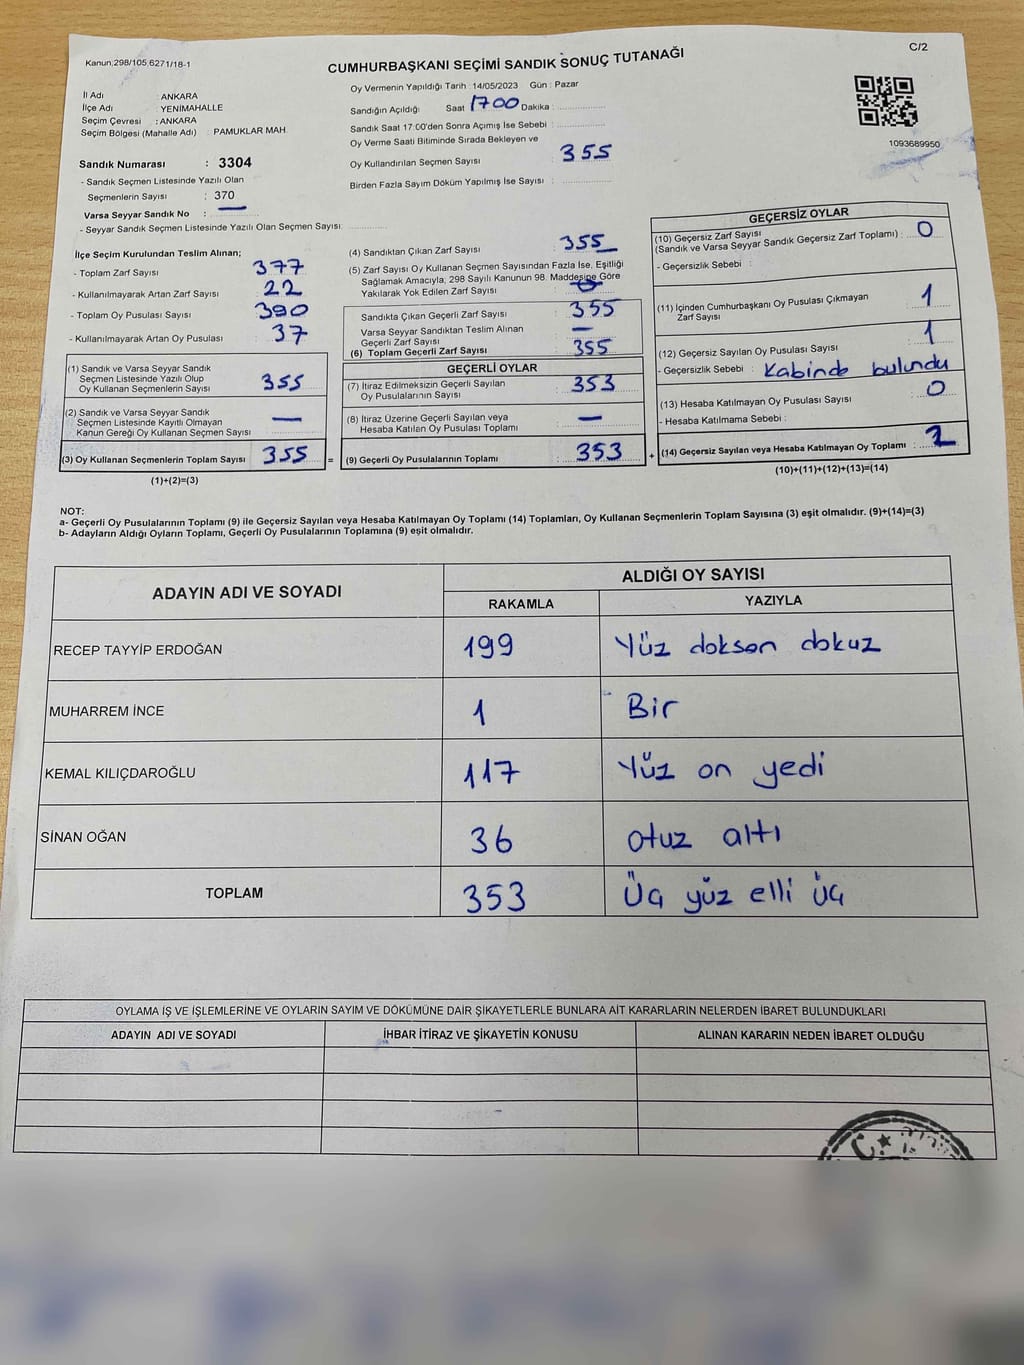 Kanun;298/105,6271/18-1
C/2
CUMHURBAŞKANI SEÇİMİ SANDIK SONUÇ TUTANAĞI
İl Adı : ANKARA
İlçe Adı : YENİMAHALLE
Seçim Çevresi : ANKARA
Seçim Bölgesi (Mahalle Adı) : PAMUKLAR MAH.
Sandık Numarası : 3304
- Sandık Seçmen Listesinde Yazılı Olan
Seçmenlerin Sayısı : 370
Varsa Seyyar Sandık No : —
- Seyyar Sandık Seçmen Listesinde Yazılı Olan Seçmen Sayısı:
Oy Vermenin Yapıldığı Tarih : 14/05/2023 Gün : Pazar
Sandığın Açıldığı Saat 1700 Dakika :
Sandık Saat 17:00'den Sonra Açımış İse Sebebi :
Oy Verme Saati Bitiminde Sırada Bekleyen ve
Oy Kullandırılan Seçmen Sayısı : 355
Birden Fazla Sayım Döküm Yapılmış İse Sayısı :
1093689950
İlçe Seçim Kurulundan Teslim Alınan;
- Toplam Zarf Sayısı 377
- Kullanılmayarak Artan Zarf Sayısı 22
- Toplam Oy Pusulası Sayısı 390
- Kullanılmayarak Artan Oy Pusulası 37
(1) Sandık ve Varsa Seyyar Sandık
Seçmen Listesinde Yazılı Olup
Oy Kullanan Seçmenlerin Sayısı 355
(2) Sandık ve Varsa Seyyar Sandık
Seçmen Listesinde Kayıtlı Olmayan
Kanun Gereği Oy Kullanan Seçmen Sayısı —
(3) Oy Kullanan Seçmenlerin Toplam Sayısı 355 =
(1)+(2)=(3)
(4) Sandıktan Çıkan Zarf Sayısı : 355
(5) Zarf Sayısı Oy Kullanan Seçmen Sayısından Fazla İse, Eşitliği
Sağlamak Amacıyla, 298 Sayılı Kanunun 98. Maddesine Göre
Yakılarak Yok Edilen Zarf Sayısı :
Sandıkta Çıkan Geçerli Zarf Sayısı : 355
Varsa Seyyar Sandıktan Teslim Alınan
Geçerli Zarf Sayısı : —
(6) Toplam Geçerli Zarf Sayısı 355
GEÇERLİ OYLAR
(7) İtiraz Edilmeksizin Geçerli Sayılan
Oy Pusulasının Sayısı : 353
(8) İtiraz Üzerine Geçerli Sayılan veya
Hesaba Katılan Oy Pusulası Toplamı : —
(9) Geçerli Oy Pusulalarının Toplamı : 353 +
GEÇERSİZ OYLAR
(10) Geçersiz Zarf Sayısı
(Sandık ve Varsa Seyyar Sandık Geçersiz Zarf Toplamı) : 0
- Geçersizlik Sebebi :
(11) İçinden Cumhurbaşkanı Oy Pusulası Çıkmayan
Zarf Sayısı : 1
(12) Geçersiz Sayılan Oy Pusulası Sayısı : 1
- Geçersizlik Sebebi : Kabinde bulundu
(13) Hesaba Katılmayan Oy Pusulası Sayısı : 0
- Hesaba Katılmama Sebebi :
(14) Geçersiz Sayılan veya Hesaba Katılmayan Oy Toplamı : 2
(10)+(11)+(12)+(13)=(14)
NOT:
a- Geçerli Oy Pusulalarının Toplamı (9) ile Geçersiz Sayılan veya Hesaba Katılmayan Oy Toplamı (14) Toplamları, Oy Kullanan Seçmenlerin Toplam Sayısına (3) eşit olmalıdır. (9)+(14)=(3)
b- Adayların Aldığı Oyların Toplamı, Geçerli Oy Pusulalarının Toplamına (9) eşit olmalıdır.
ADAYIN ADI VE SOYADI
ALDIĞI OY SAYISI
RAKAMLA YAZIYLA
RECEP TAYYİP ERDOĞAN 199 Yüz doksan dokuz
MUHARREM İNCE 1 Bir
KEMAL KILIÇDAROĞLU 117 Yüz on yedi
SİNAN OĞAN 36 otuz altı
TOPLAM 353 Üç yüz elli üç
OYLAMA İŞ VE İŞLEMLERİNE VE OYLARIN SAYIM VE DÖKÜMÜNE DAİR ŞİKAYETLERLE BUNLARA AİT KARARLARIN NELERDEN İBARET BULUNDUKLARI
ADAYIN ADI VE SOYADI İHBAR İTİRAZ VE ŞİKAYETİN KONUSU ALINAN KARARIN NEDEN İBARET OLDUĞU